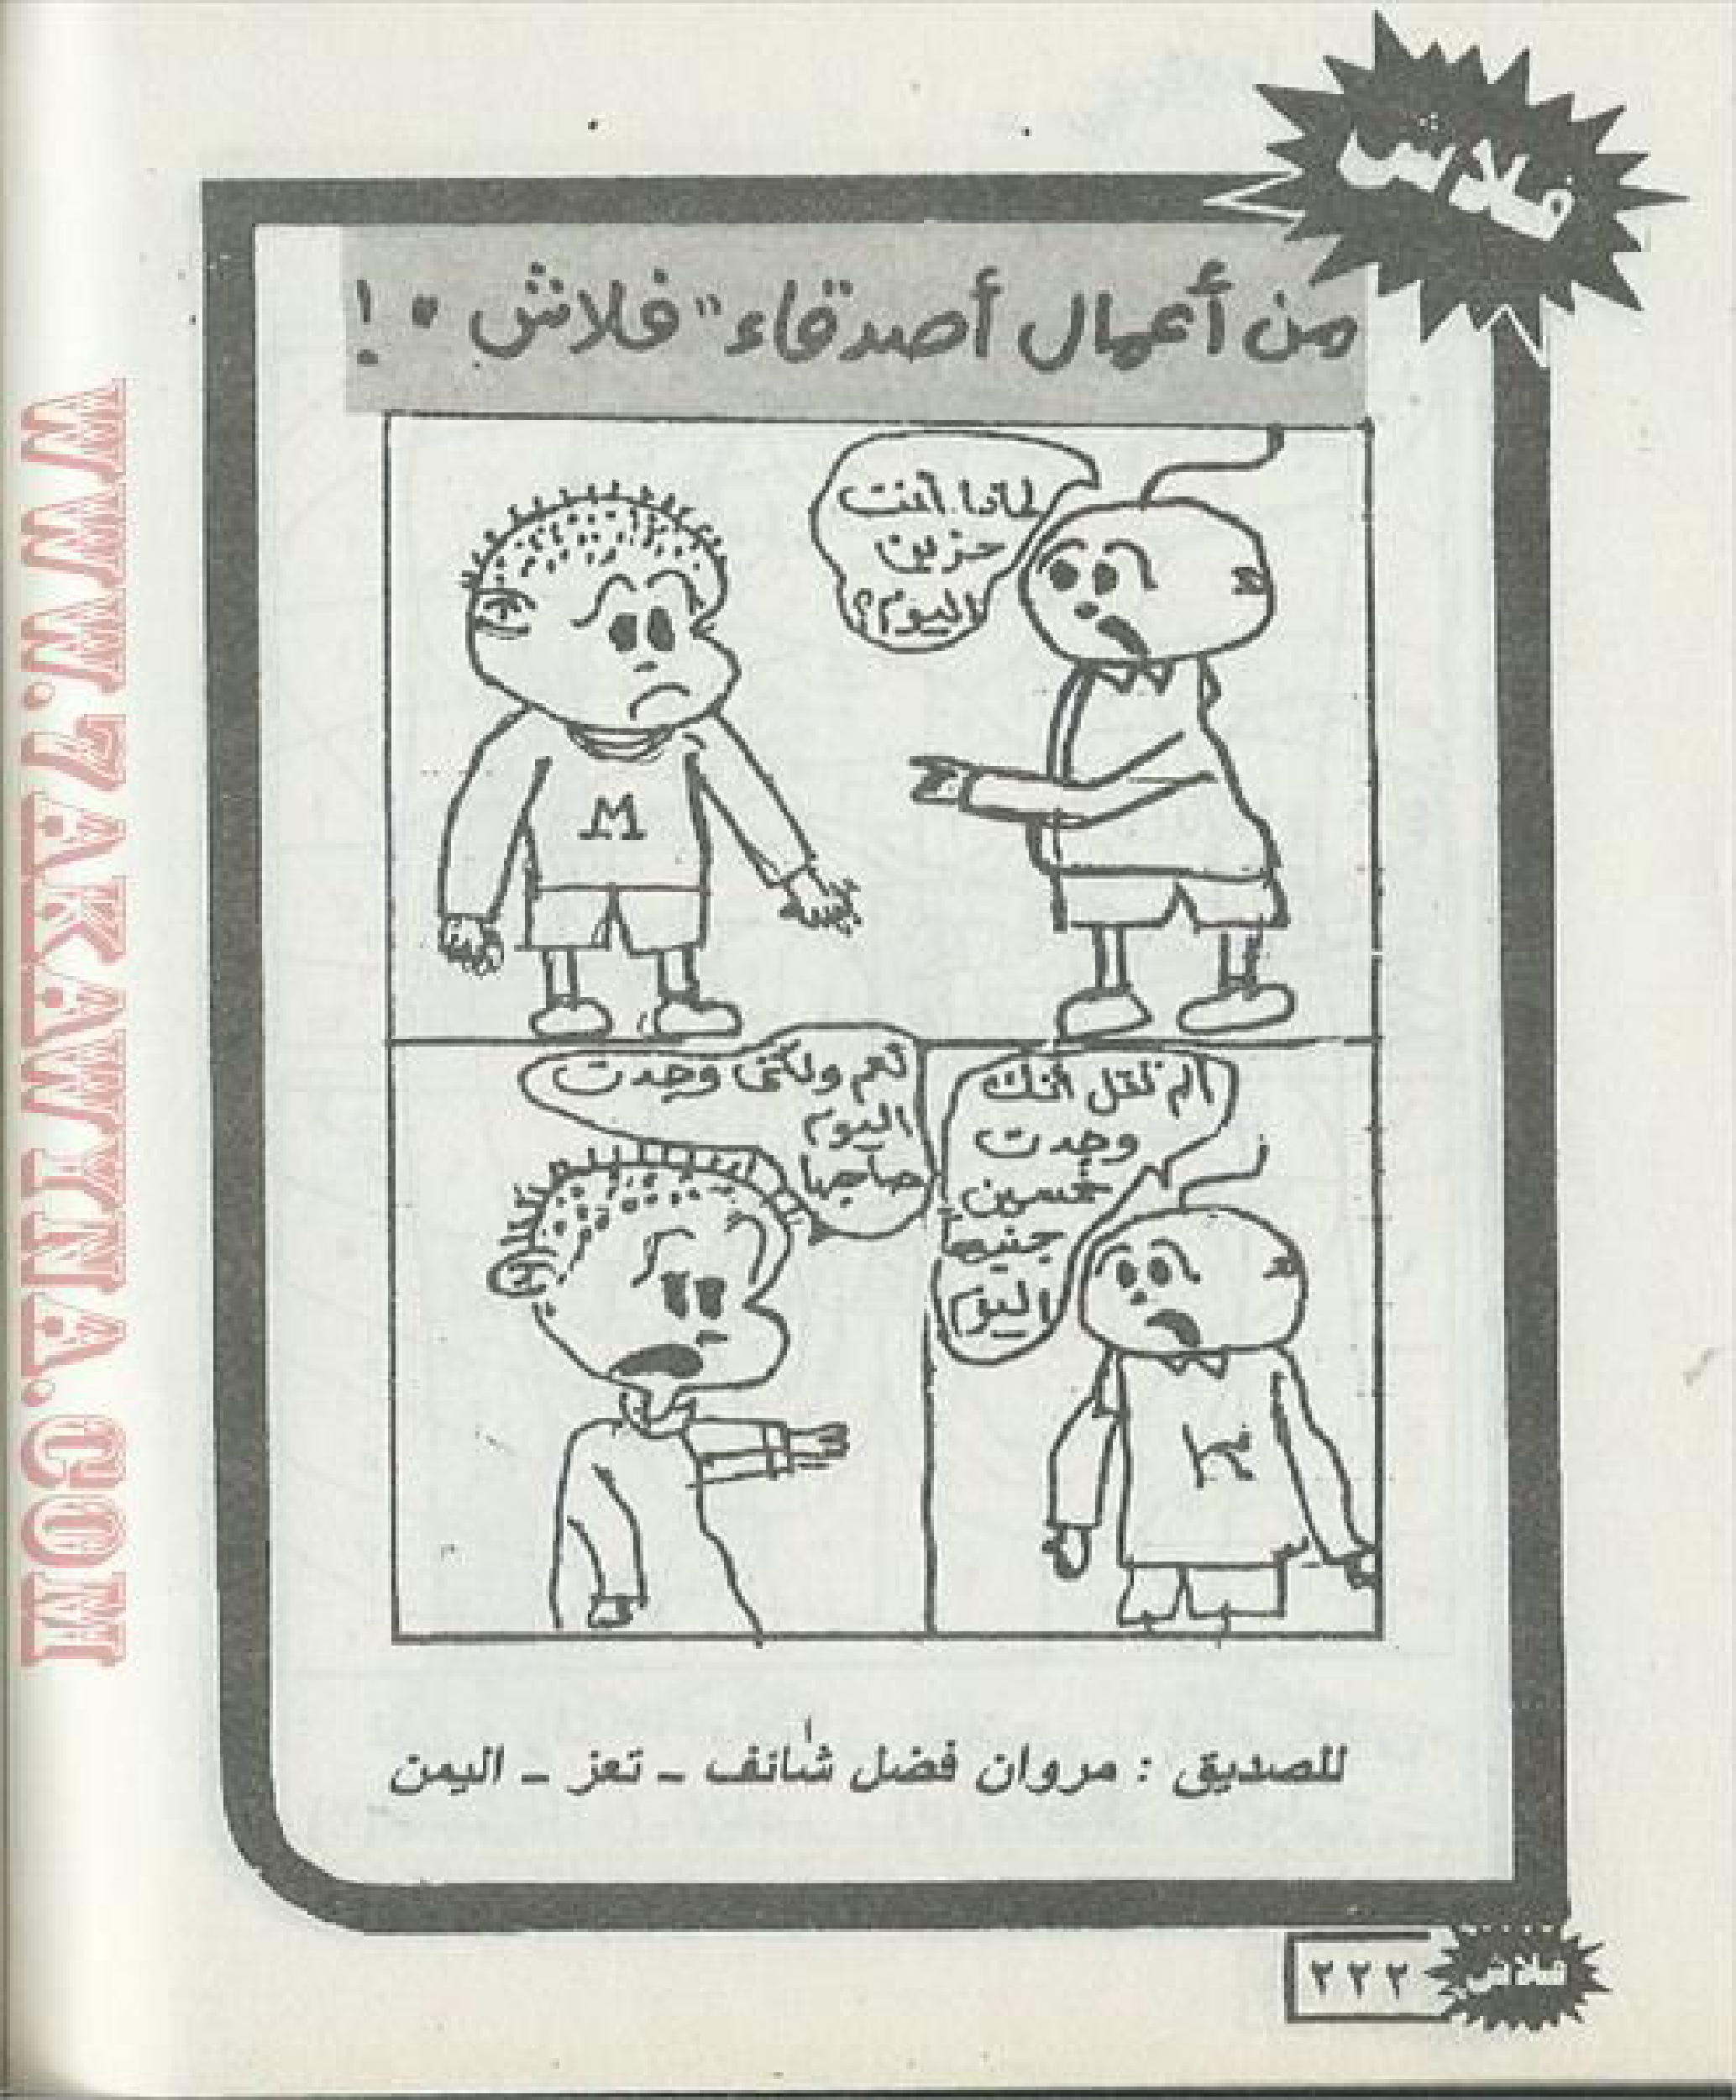 فلاش
من أعمال أصدقاء "فلاش" !
لماذا أنت
حزين
اليوم؟
ألم تقل أنك
وجدت
خمسين
جنيها
اليوم
نعم ولكنى وجدت
اليوم
صاحبها
M
للصديق : مروان فضل شائف ـ تعز ـ اليمن
٢٢٢
فلاش
WWW.7AKAWITNA.COM